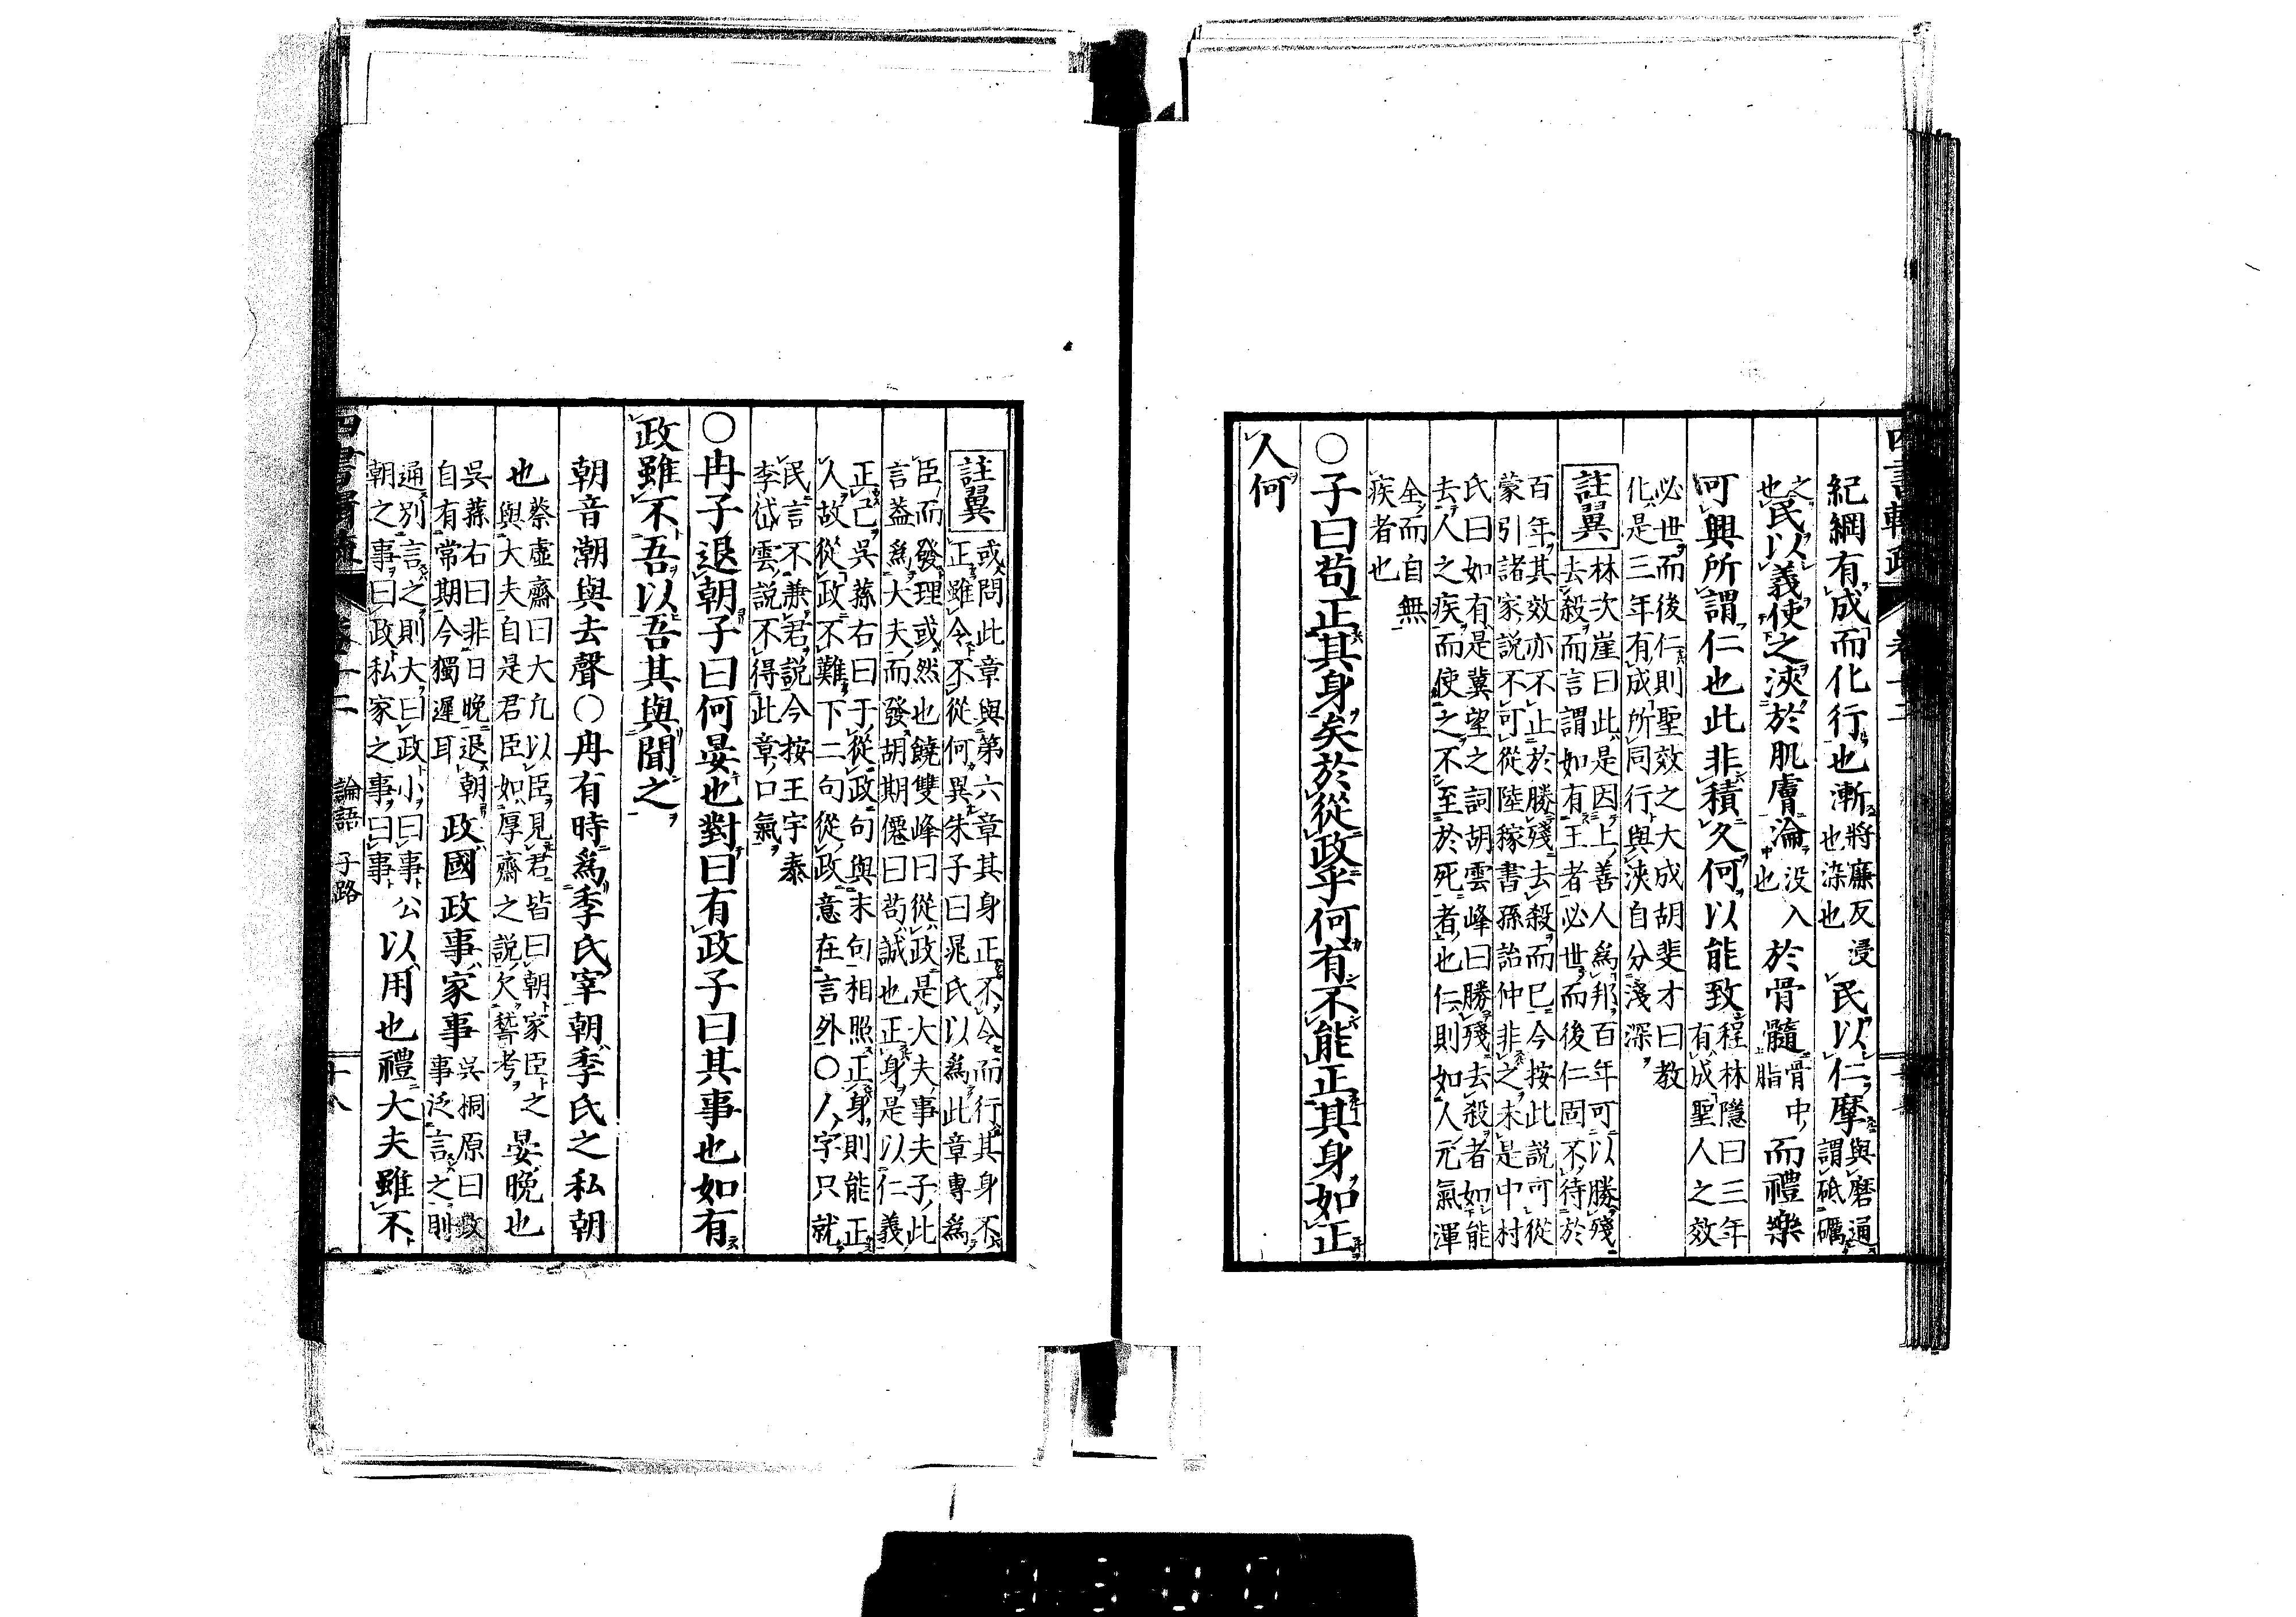 紀綱有成而化行也漸將廉反浸也染也民以仁摩與磨通謂砥礪
之也民以義使之浹於肌膚淪沒入也於骨髓骨中脂而禮樂
可興所謂仁也此非積久何以能致程林隱曰三年有成聖人之效
必世而後仁則聖效之大成胡斐才曰教
化是三年有成所同行與浹自分淺深
註翼林次崖曰此是因上善人為邦百年可以勝殘
去殺而言謂如有王者必世而後仁固不待於
百年其效亦不止於勝殘去殺而已今按此説可從
蒙引諸家説不可從陸稼書孫詒仲非之未是中村
氏曰如有是冀望之詞胡雲峰曰勝殘去殺者如能
去人之疾而使之不至於死者也仁則如人元氣渾
全而自無
疾者也
○子曰苟正其身矣於從政乎何有不能正其身如正
人何
註翼或問此章與第六章其身正不令而行其身不
正雖令不從何異朱子曰晁氏以為此章專為
臣而發理或然也饒雙峰曰從政是大夫事夫子此
言蓋為大夫而發胡期僊曰苟誠也正身是以仁義
正己吳蓀右曰于從政句與末句相照正身則能正
人故從政不難下二句從政意在言外○人字只就
民言不兼君説今按王宇泰
李岱雲説不得此章口氣
○冉子退朝子曰何晏也對曰有政子曰其事也如有
政雖不吾以吾其與聞之
朝音潮與去聲○冉有時為季氏宰朝季氏之私朝
也蔡虛齋曰大凡以臣見君皆曰朝家臣之與大夫自是君臣如厚齋之説欠稽考晏晚也
吳蓀右曰非日晚退朝自有常期今獨遲耳政國政事家事吳桐原曰政事泛言之則
通別言之則大曰政小曰事公朝之事曰政私家之事曰事以用也禮大夫雖不
論語 子路
十八